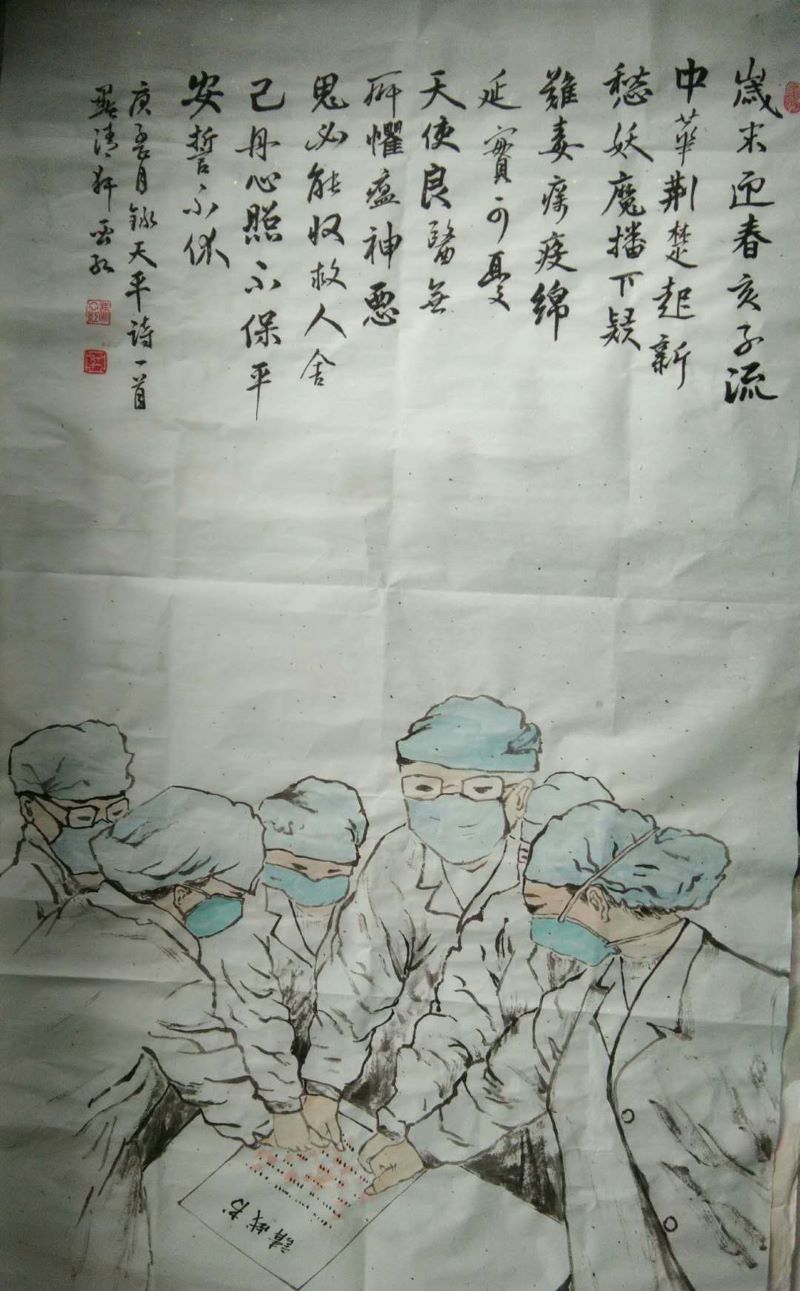 歲末迎春亥子流
中華荆楚起新
愁妖魔播下疑
難毒疫綿
延實可憂
天使良醫無
所懼瘟神惡
鬼必能收救人舍
己丹心照不保平
安誓不休
庚子月錄天平詩一首
清軒
請戰书